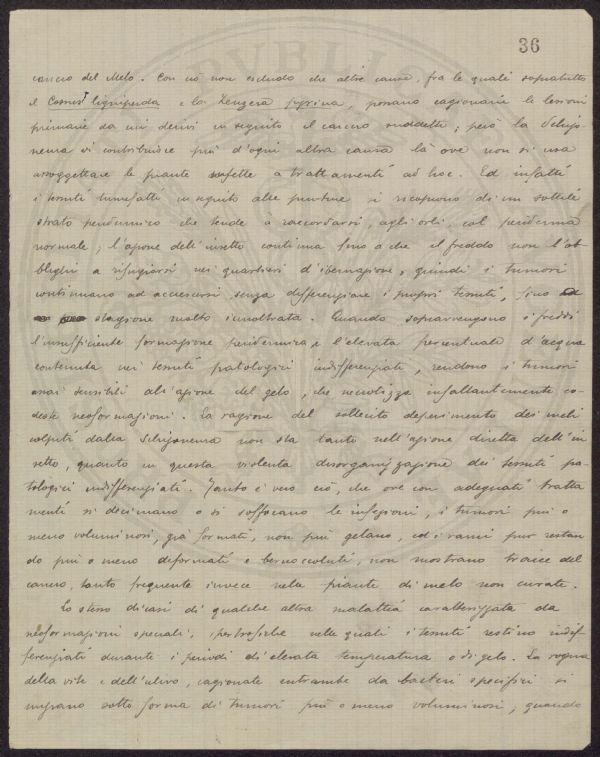 36
cancro del Melo. Con ciò non escludo che altre cause, fra le quali sopratutto
il Cossus ligniperda e la Zeuzera pyrina, possano cagionare le lesioni
primarie da cui derivi in seguito il cancro suddetto; però la Schizo-
neura vi contribuisce più d'ogni altra causa là ove non si usa
assoggettare le piante infette a trattamenti ad hoc. Ed infatti
i tessuti tumefatti in seguito alle punture si ricoprono di un sottile
strato peridermico che tende a raccordarsi, agli orli, col periderma
normale; l'azione dell'insetto continua fino a che il freddo non l'ob-
blighi a rifugiarsi nei quartieri d'ibernazione, quindi i tumori
continuano ad accrescersi senza differenziare i propri tessuti, fino
stagione molto inoltrata. Quando sopravvengono i freddi
l'insufficiente formazione peridermica e l'elevata percentuale d'acqua
contenuta nei tessuti patologici indifferenziati, rendono i tumori
assai sensibili all'azione del gelo, che necrotizza infallantemente co-
deste neoformazioni. La ragione del sollecito deperimento dei meli
colpiti dalla Schizoneura non sta tanto nell'azione diretta dell'in
setto, quanto in questa violenta disorganizzazione dei tessuti pa-
tologici indifferenziati. Tanto è vero ciò, che ove con adeguati tratta
menti si decimano o si soffocano le infezioni, i tumori più o
meno voluminosi, già formati, non più gelano, ed i rami pur restan
do più o meno deformati e bernoccoluti, non mostrano tracce del
cancro, tanto frequente invece nelle piante di melo non curate.
Lo stesso dicasi di qualche altra malattia caratterizzata da
neoformazioni speciali, ipertrofiche nelle quali i tessuti restino indif
ferenziati durante i periodi di elevata temperatura o di gelo. La rogna
della vite e dell'ulivo, cagionate entrambe da bacteri specifici si
iniziano sotto forma di tumori più o meno voluminosi, quando
PVBLIC